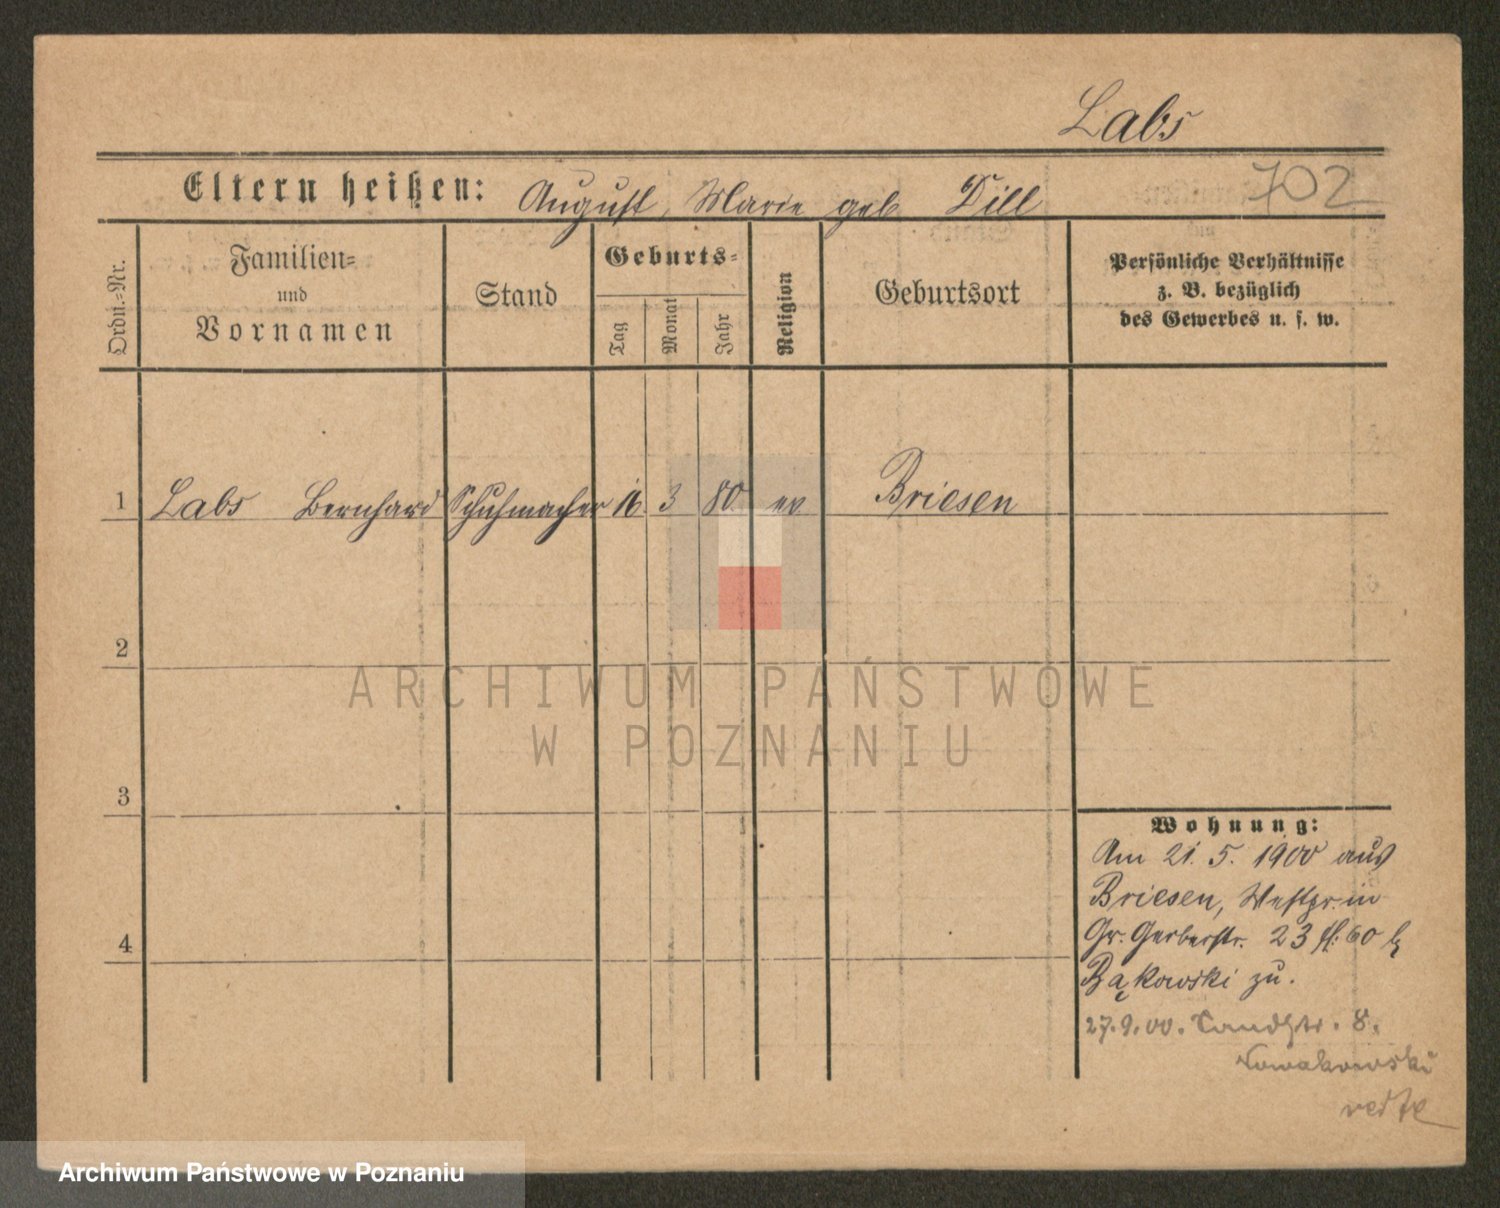 Labs
Eltern heißen: August, Marie geb Dill 702
Ordn.-Nr.
Familien-
und
Vornamen
Stand
Geburts-
Tag
Monat
Jahr
Religion
Geburtsort
Persönliche Verhältnisse
z. B. bezüglich
des Gewerbes u. s. w.
1 Labs Bernhard Schuhmacher 16 3 80 ev Briesen
2
3
4
Wohnung:
Am 21. 5. 1900 aus
Briesen, Westpr. in
Gr. Gerberstr. 23 60
Bąkowski zu.
27.9.00. 8.
Nowakowski
ARCHIWUM PAŃSTWOWE
W POZNANIU
Archiwum Państwowe w Poznaniu